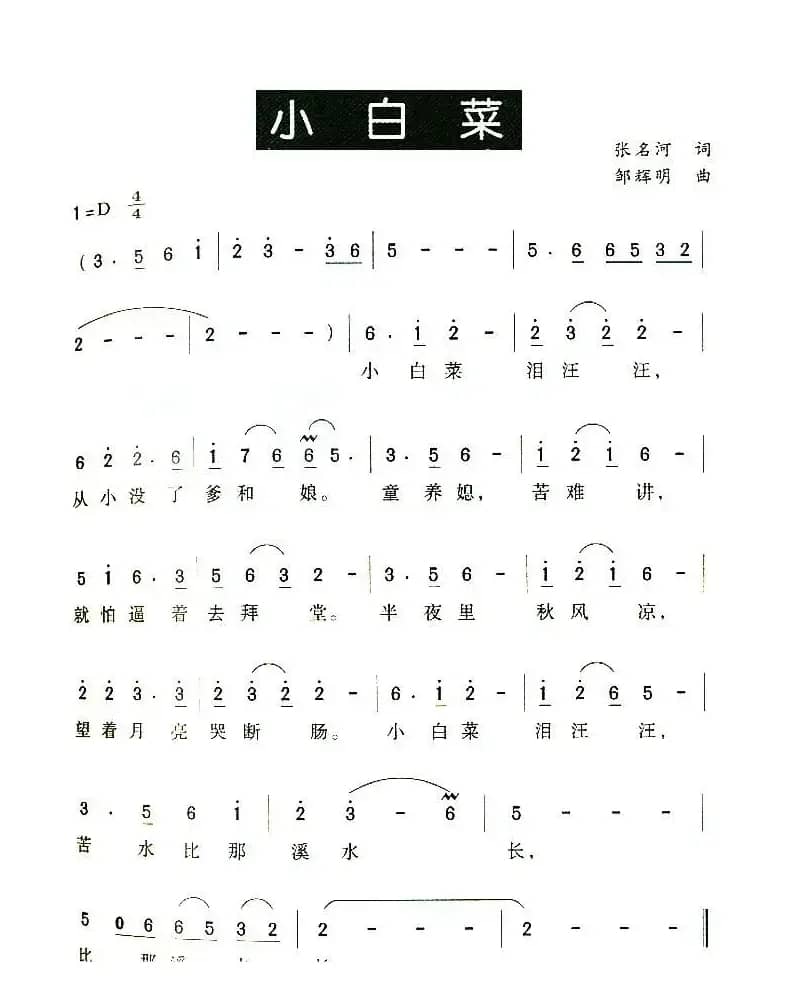 小白菜
张名河 词
邹辉明 曲
1=D 4/4
(3. 5 6 i | 2 3 - 3 6 | 5 - - - | 5. 6 6 5 3 2 |
2 - - - | 2 - - - ) | 6. i 2 - | 2 3 2 2 - |
小白菜 泪汪汪,
6 2 2. 6 | i 7 6 6 5. | 3. 5 6 - | i 2 i 6 - |
从小没了爹和娘。童养媳, 苦难讲,
5 i 6. 3 | 5 6 3 2 - | 3. 5 6 - | i 2 i 6 - |
就怕逼着去拜堂。半夜里 秋风凉,
2 2 3. 3 | 2 3 2 2 - | 6. i 2 - | i 2 6 5 - |
望着月亮哭断肠。小白菜 泪汪汪,
3. 5 6 i | 2 3 - 6 | 5 - - - |
苦水比那溪水长,
5 0 6 6 5 3 2 | 2 - - - | 2 - - - ‖
比那溪